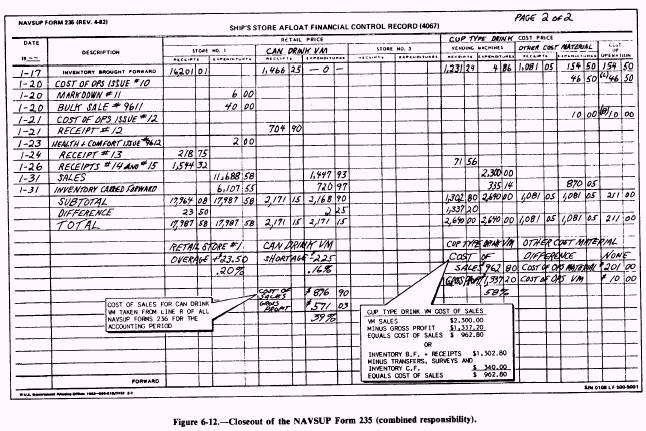 NAVSUP FORM 235 (REV. 4-82)
SHIP'S STORE AFLOAT FINANCIAL CONTROL RECORD (4067)
PAGE 2 of 2
RETAIL PRICE
CUP TYPE DRINK COST PRICE
DATE
DESCRIPTION
STORE NO. 1 CAN DRINK VM STORE NO. 3 VENDING MACHINES OTHER COST MATERIAL COST OF OPERATION
RECEIPTS EXPENDITURES RECEIPTS EXPENDITURES RECEIPTS EXPENDITURES RECEIPTS EXPENDITURES RECEIPTS EXPENDITURES
1-17 INVENTORY BROUGHT FORWARD 16201 01 1,466 25 -0- 1,231 24 4 86 1,081 05 154 50 154 50
1-20 COST OF OPS ISSUE #10 46 50 46 50
1-20 MARKDOWN #11 6 00
1-20 BULK SALE #9611 40 00
1-21 COST OF OPS ISSUE #12 10 00 10 00
1-21 RECEIPT #12 704 90
1-23 HEALTH & COMFORT ISSUE #9612 2 00
1-24 RECEIPT #13 218 75
1-26 RECEIPTS #14 AND #15 1,544 32 71 56
1-31 SALES 11,688 58 1,447 93 2,300 00
1-31 INVENTORY CARRIED FORWARD 6,107 55 720 97 335 14 870 05
SUBTOTAL 17,964 08 17,987 58 2,171 15 2,168 90 1,302 80 2,640 00 1,081 05 1,081 05 211 00
DIFFERENCE 23 50 2 25 1,337 20
TOTAL 17,987 58 17,987 58 2,171 15 2,171 15 2,640 00 2,640 00 1,081 05 1,081 05 211 00
RETAIL STORE #1. CAN DRINK VM CUP TYPE DRINK VM OTHER COST MATERIAL
OVERAGE +23.50 SHORTAGE -2.25 COST OF DIFFERENCE NONE
.20% .16% SALES $962 80 COST OF OPS MATERIAL $201 00
GROSS PROFIT $1,337.20 COST OF OPS VM $10 00
58%
COST OF SALES $876 90
GROSS PROFIT $571 03
39%
COST OF SALES FOR CAN DRINK
VM TAKEN FROM LINE R OF ALL
NAVSUP FORMS 236 FOR THE
ACCOUNTING PERIOD
CUP TYPE DRINK VM COST OF SALES
VM SALES $2,300.00
MINUS GROSS PROFIT $1,337.20
EQUALS COST OF SALES $ 962.80
OR
INVENTORY B.F. + RECEIPTS $1,302.80
MINUS TRANSFERS, SURVEYS AND
INVENTORY C.F. $ 340.00
EQUALS COST OF SALES $ 962.80
FORWARD
S/N 0108 LF-500-5001
Figure 6-12.—Closeout of the NAVSUP Form 235 (combined responsibility).